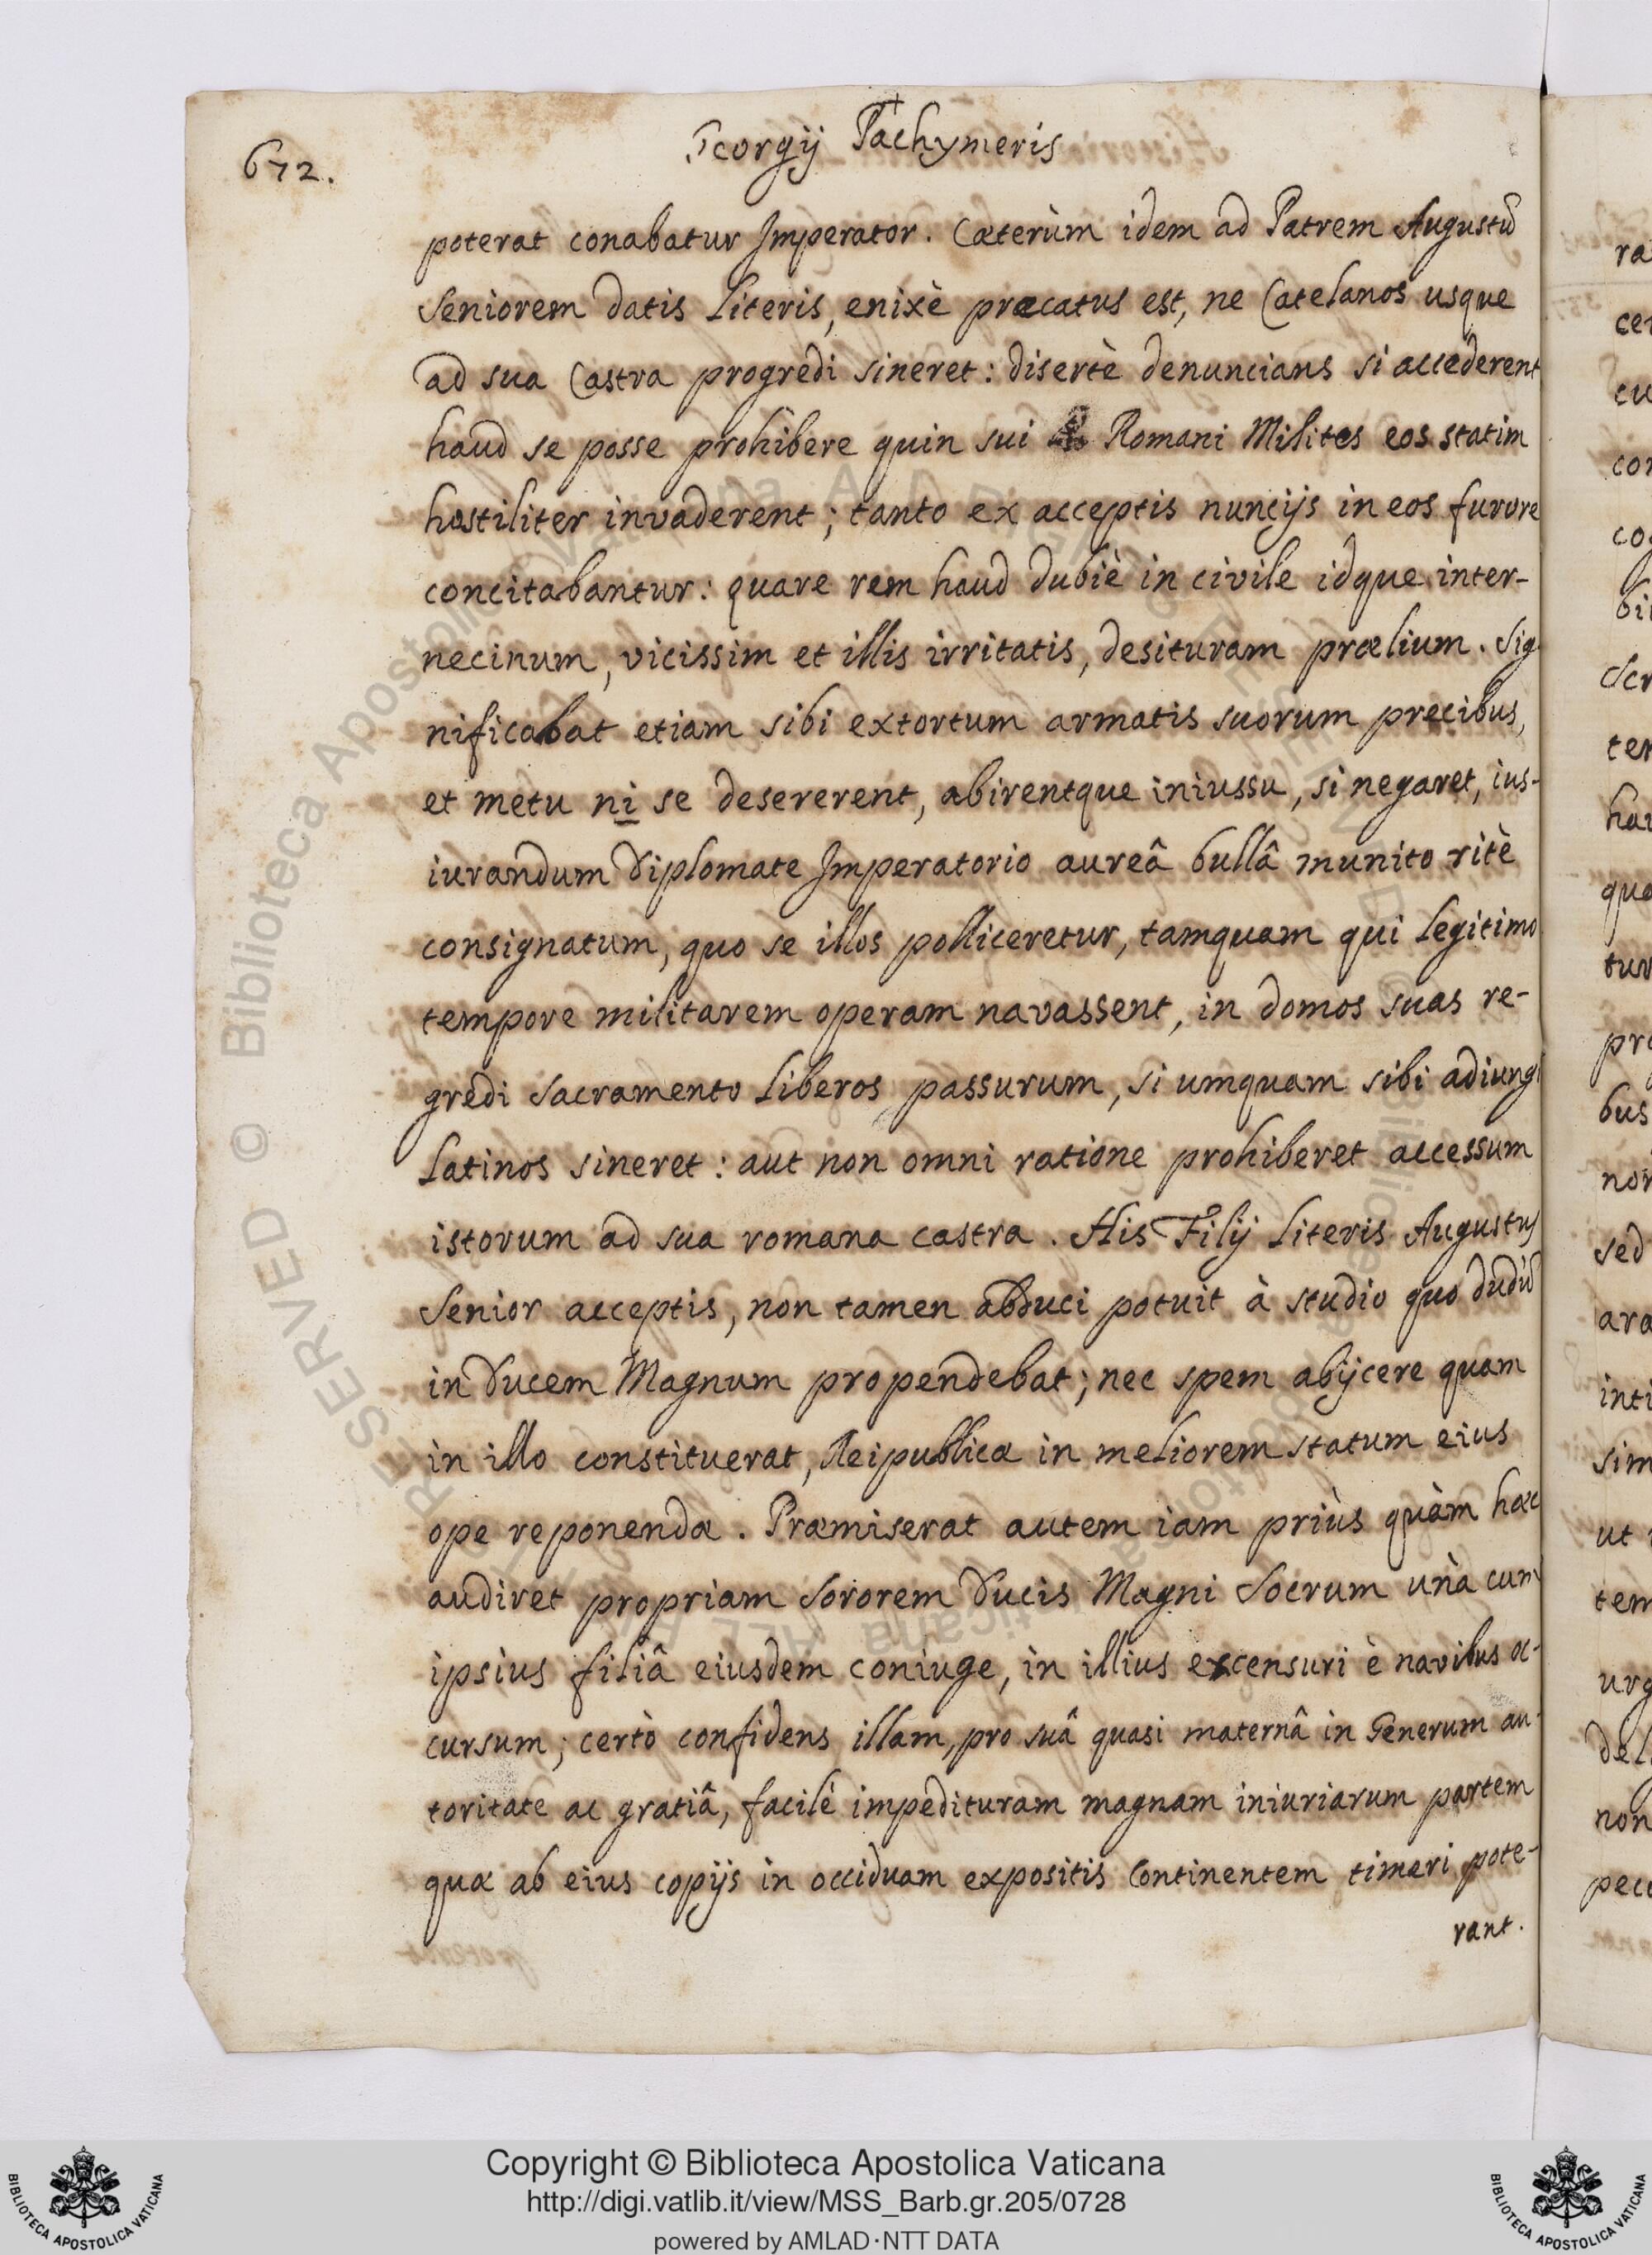 672.
Georgij Pachymeris
poterat conabatur Imperator. Cæterùm idem ad Patrem Augustū
Seniorem datis Literis, enixè præcatus est, ne Catelanos usque
ad sua Castra progredi sineret: disertè denuncians si accederent
haud se posse prohibere quin sui Romani Milites eos statim
hostiliter invaderent; tanto ex acceptis nuncijs in eos furore
concitabantur: quare rem haud dubiè in civile idque inter-
necinum, vicissim et illis irritatis, desituram prælium. Sig-
nificabat etiam sibi extortum armatis suorum precibus,
et metu ni se desererent, abirentque iniussu, si negaret, ius-
iurandum Diplomate Imperatorio aureâ bullâ munito ritè
consignatum, quo se illos polliceretur, tamquam qui legitimo
tempore militarem operam navassent, in domos suas re-
gredi sacramento Liberos passurum, si umquam sibi adiungi
Latinos sineret: aut non omni ratione prohiberet accessum
istorum ad sua romana castra. His Filij Literis Augustus
Senior acceptis, non tamen abduci potuit à studio quo dudū
in Ducem Magnum propendebat; nec spem abijcere quam
in illo constituerat, Reipublicæ in meliorem statum eius
ope reponendæ. Præmiserat autem iam priùs quàm hæc
audiret propriam Sororem Ducis Magni Socrum unà cum
ipsius filiâ eiusdem coniuge, in illius excensuri è navibus oc-
cursum; certò confidens illam, pro suâ quasi maternâ in Generum au-
toritate ac gratiâ, facilè impedituram magnam iniuriarum partem
quæ ab eius copijs in occiduam expositis Continentem timeri pote-
rant.
Copyright © Biblioteca Apostolica Vaticana
http://digi.vatlib.it/view/MSS_Barb.gr.205/0728
powered by AMLAD·NTT DATA
BIBLIOTECA APOSTOLICA VATICANA
BIBLIOTECA APOSTOLICA VATICANA